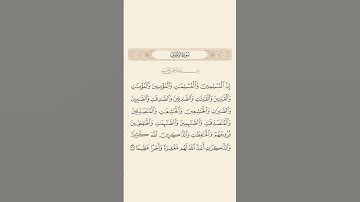 إِنَّ ٱلْمُسْلِمِينَ وَٱلْمُسْلِمَٰتِ وَٱلْمُؤْمِنِينَ وَٱلْمُؤْمِنَٰتِ
وَٱلْقَٰنِتِينَ وَٱلْقَٰنِتَٰتِ وَٱلصَّٰدِقِينَ وَٱلصَّٰدِقَٰتِ وَٱلصَّٰبِرِينَ
وَٱلصَّٰبِرَٰتِ وَٱلْخَٰشِعِينَ وَٱلْخَٰشِعَٰتِ وَٱلْمُتَصَدِّقِينَ
وَٱلْمُتَصَدِّقَٰتِ وَٱلصَّٰٓئِمِينَ وَٱلصَّٰٓئِمَٰتِ وَٱلْحَٰفِظِينَ
فُرُوجَهُمْ وَٱلْحَٰفِظَٰتِ وَٱلذَّٰكِرِينَ ٱللَّهَ كَثِيرًا
وَٱلذَّٰكِرَٰتِ أَعَدَّ ٱللَّهُ لَهُم مَّغْفِرَةً وَأَجْرًا عَظِيمًا